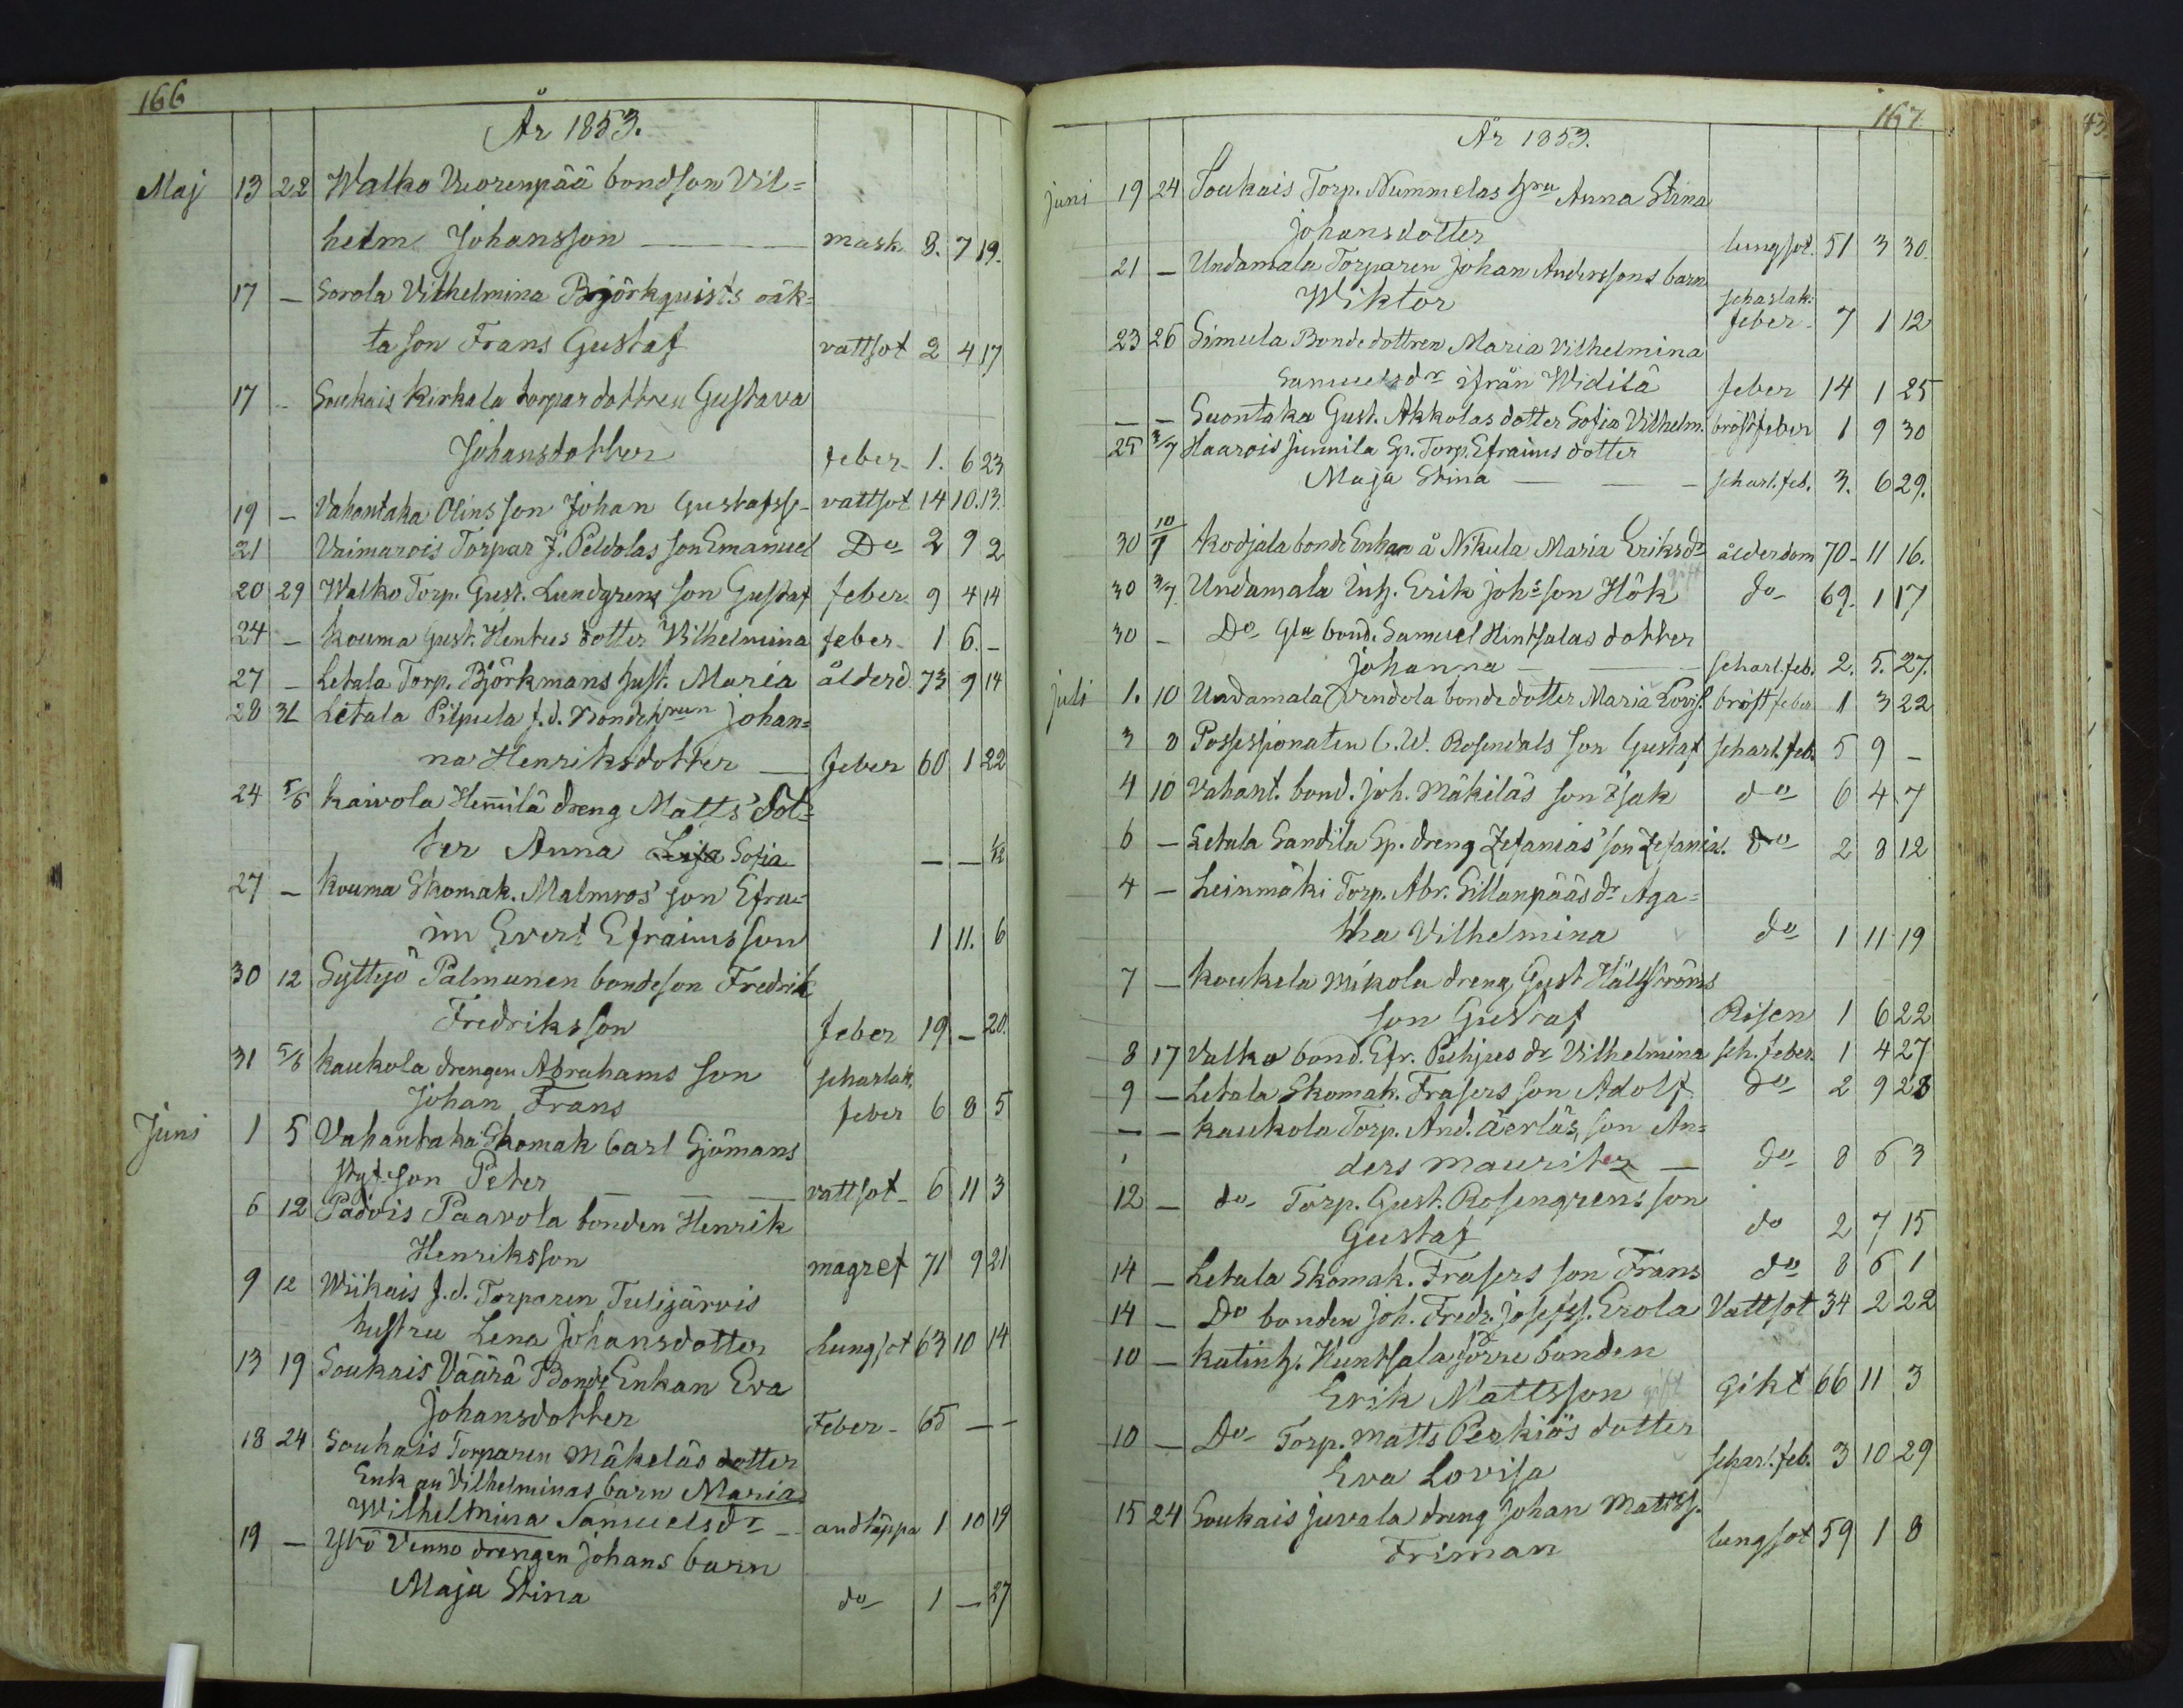 166
År 1853.
Maj 13 22 Walko Vuorenpää bondson Vil=
helm Johansson — mask 8. 7 19.
17 — Sorola Vilhelmina Björkquists oäk=
ta son Frans Gustaf vattsot 2 4 17
17 — Soukais Kirkala torpardottren Gustava
Johansdotter feber 1. 6 23
19 — Vahantaka Olins son Johan Gustafss. vattsot 14 10. 13.
21 Vaimarois Torpar J. Peldolas son Emanuel Do 2 9 2
20 29 Walko Torp. Gust. Lundgrens son Gustaf feber 9 4 14
24 — Kouma Gust. Hentus dotter Vilhelmina feber 1 6. —
27 — Letala Torp. Björkmans hust. Maria ålderd. 73 9 14
28 31 Letala Pilpula f.d. Bondehrun Johan=
na Henriksdotter — feber 60 1 22
24 5/6 Kaivola Hemmilä dreng Matts' dot=
ter Anna Lisa Sofia — — 1/12
27 — Kouma Skomak. Malmros' son Efra=
im Evert Efraimsson 1 11. 6
30 12 Syttyö Palmunen bondeson Fredrik
Fredriksson feber 19 — 20.
31 5/6 Kaukola drengen Abrahams son scharlak.
Johan Frans feber 6 8 5
Juni 1 5 Vahantaka Skomak Carl Sjömans
styfson Peter — vattsot 6 11 3
6 12 Padvis Paavola bonden Henrik
Henriksson magref 71 9 21
9 12 Wiikais f.d. Torparen Tulijärvis
hustru Lena Johansdotter Lungsot 63 10 14
13 19 Soukais Väärä Bonde Enkan Eva
Johansdotter Feber 65 — —
18 24 Soukais Torparen Mäkeläs dotter
Enkan Vilhelminas barn Maria
Wilhelmina Samuelsdr — andtäppa 1 10 19
19 — Ytrö Venno drengen Johans barn
Maja Stina do 1 — 27
167
År 1853.
juni 19 24 Soukais Torp. Nummelas hru Anna Stina
Johansdotter lungsot. 51 3 30.
21 — Undamala Torparen Johan Anderssons barn
Wiktor scharlak: feber 7 1 12
23 26 Simula Bondedottren Maria Vilhelmina
Samuelsdr ifrån Widilä feber 14 1 25
— — Suontaka Gust. Akkolas dotter Sofia Vilhelm. bröstfeber 1 9 30
25 3/7 Haarois Junnila Sp. Torp. Efraims dotter
Maja Stina — — scharl.feb. 3. 6 29.
30 10/7 Kodjala bonde Enkan å Nikula Maria Eriksdr ålderdom 70 11 16.
30 3/7 Undamala Inh. Erik Johsson Hök gift do 69. 1 17
30 — Do Gla bond. Samuel Hintsalas dotter
Johanna — — scharl.feb. 2. 5. 27.
juli 1. 10 Undamala Vendola bondedotter Maria Lovis. bröstfeber 1 3 22
3 3 Possessionaten C.W. Rosendals son Gustaf scharl.feb. 5 9 —
4 10 Vahant. bond. Joh. Mäkiläs son Isak do 6 4 7
6 — Letala Sandila Sp. dreng Zefanias' son Zefanias. do 2 8 12
4 — Leinmäki Torp. Abr. Sillanpääs dr Aga=
tha Vilhelmina do 1 11 19
7 — Koukela Mikola dreng Gust Hällströms
son Gustaf Risen 1 6 22
8 17 Valko bond. Efr. Puhjus dr Vilhelmina sch.feber 1 4 27
9 — Letala Skomak. Frasers son Adolf do 2 9 28
— — Kaukola Torp. And. Äerläs, son An=
ders Mauritz — do 8 6 3
12 — do Torp. Gust. Rosengrens son
Gustaf do 2 7 15
14 — Letala Skomak. Frasers son Frans do 8 6 1
14 — Do bonden Joh. Fredr. Josefss. Erola Vattsot 34 2 22
10 — Katinh. Huntsala förre bonden
Erik Mattsson gift gikt 66 11 3
10 — Do Torp. Matts Perkiös dotter
Eva Lovisa scharl.feb. 3 10 29
15 24 Soukais Juvala dreng Johan Mattss.
Friman lungsot 59 1 8